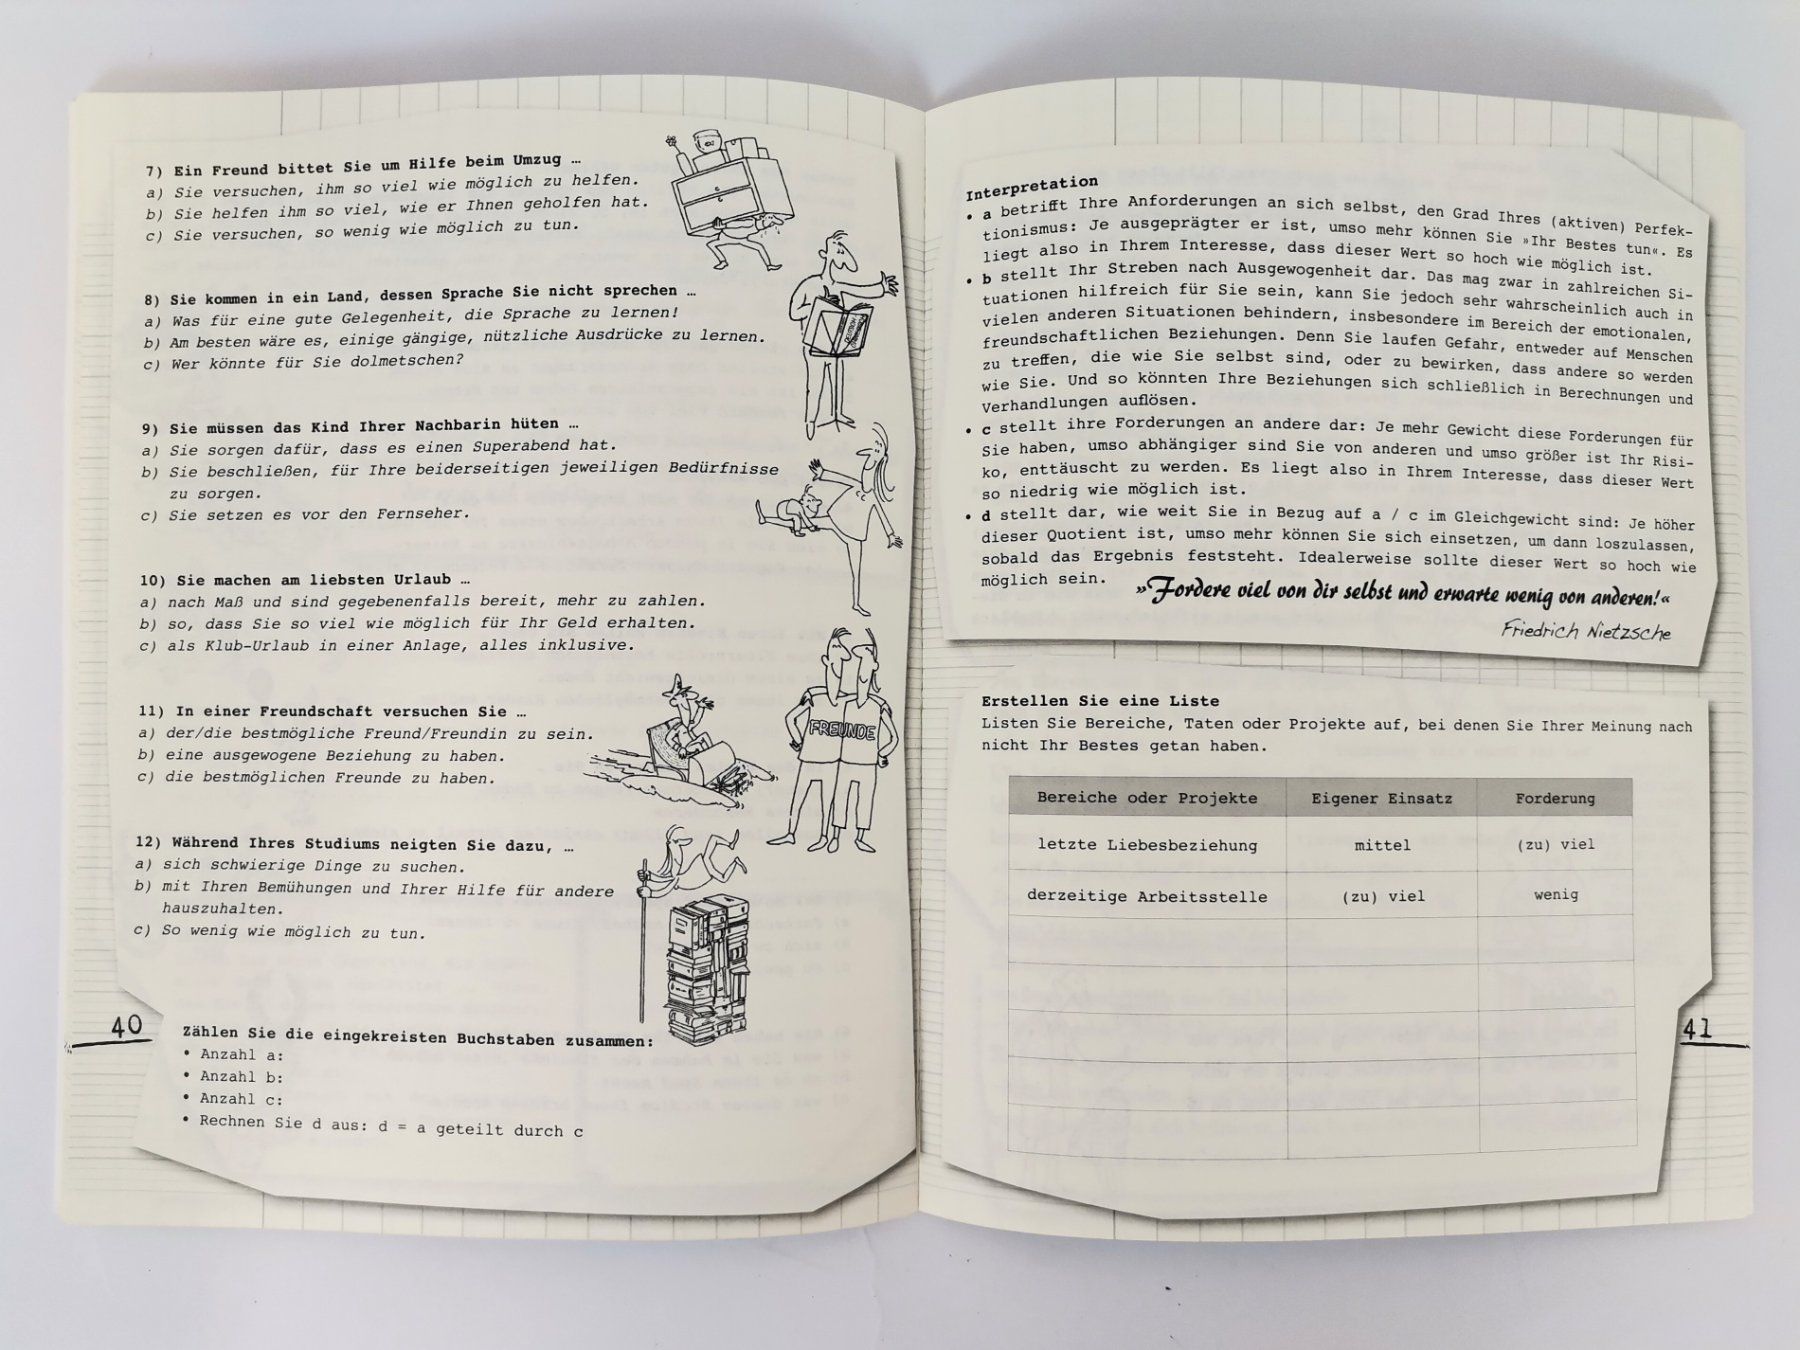 7) Ein Freund bittet Sie um Hilfe beim Umzug …
a) Sie versuchen, ihm so viel wie möglich zu helfen.
b) Sie helfen ihm so viel, wie er Ihnen geholfen hat.
c) Sie versuchen, so wenig wie möglich zu tun.
8) Sie kommen in ein Land, dessen Sprache Sie nicht sprechen …
a) Was für eine gute Gelegenheit, die Sprache zu lernen!
b) Am besten wäre es, einige gängige, nützliche Ausdrücke zu lernen.
c) Wer könnte für Sie dolmetschen?
9) Sie müssen das Kind Ihrer Nachbarin hüten …
a) Sie sorgen dafür, dass es einen Superabend hat.
b) Sie beschließen, für Ihre beiderseitigen jeweiligen Bedürfnisse
zu sorgen.
c) Sie setzen es vor den Fernseher.
10) Sie machen am liebsten Urlaub …
a) nach Maß und sind gegebenenfalls bereit, mehr zu zahlen.
b) so, dass Sie so viel wie möglich für Ihr Geld erhalten.
c) als Klub-Urlaub in einer Anlage, alles inklusive.
11) In einer Freundschaft versuchen Sie …
a) der/die bestmögliche Freund/Freundin zu sein.
b) eine ausgewogene Beziehung zu haben.
c) die bestmöglichen Freunde zu haben.
FREUNDE
12) Während Ihres Studiums neigten Sie dazu, …
a) sich schwierige Dinge zu suchen.
b) mit Ihren Bemühungen und Ihrer Hilfe für andere
hauszuhalten.
c) So wenig wie möglich zu tun.
40
Zählen Sie die eingekreisten Buchstaben zusammen:
• Anzahl a:
• Anzahl b:
• Anzahl c:
• Rechnen Sie d aus: d = a geteilt durch c
Interpretation
• a betrifft Ihre Anforderungen an sich selbst, den Grad Ihres (aktiven) Perfek-
tionismus: Je ausgeprägter er ist, umso mehr können Sie »Ihr Bestes tun«. Es
liegt also in Ihrem Interesse, dass dieser Wert so hoch wie möglich ist.
• b stellt Ihr Streben nach Ausgewogenheit dar. Das mag zwar in zahlreichen Si-
tuationen hilfreich für Sie sein, kann Sie jedoch sehr wahrscheinlich auch in
vielen anderen Situationen behindern, insbesondere im Bereich der emotionalen,
freundschaftlichen Beziehungen. Denn Sie laufen Gefahr, entweder auf Menschen
zu treffen, die wie Sie selbst sind, oder zu bewirken, dass andere so werden
wie Sie. Und so könnten Ihre Beziehungen sich schließlich in Berechnungen und
Verhandlungen auflösen.
• c stellt ihre Forderungen an andere dar: Je mehr Gewicht diese Forderungen für
Sie haben, umso abhängiger sind Sie von anderen und umso größer ist Ihr Risi-
ko, enttäuscht zu werden. Es liegt also in Ihrem Interesse, dass dieser Wert
so niedrig wie möglich ist.
• d stellt dar, wie weit Sie in Bezug auf a / c im Gleichgewicht sind: Je höher
dieser Quotient ist, umso mehr können Sie sich einsetzen, um dann loszulassen,
sobald das Ergebnis feststeht. Idealerweise sollte dieser Wert so hoch wie
möglich sein.
»Fordere viel von dir selbst und erwarte wenig von anderen!«
Friedrich Nietzsche
Erstellen Sie eine Liste
Listen Sie Bereiche, Taten oder Projekte auf, bei denen Sie Ihrer Meinung nach
nicht Ihr Bestes getan haben.
Bereiche oder Projekte Eigener Einsatz Forderung
letzte Liebesbeziehung mittel (zu) viel
derzeitige Arbeitsstelle (zu) viel wenig
41